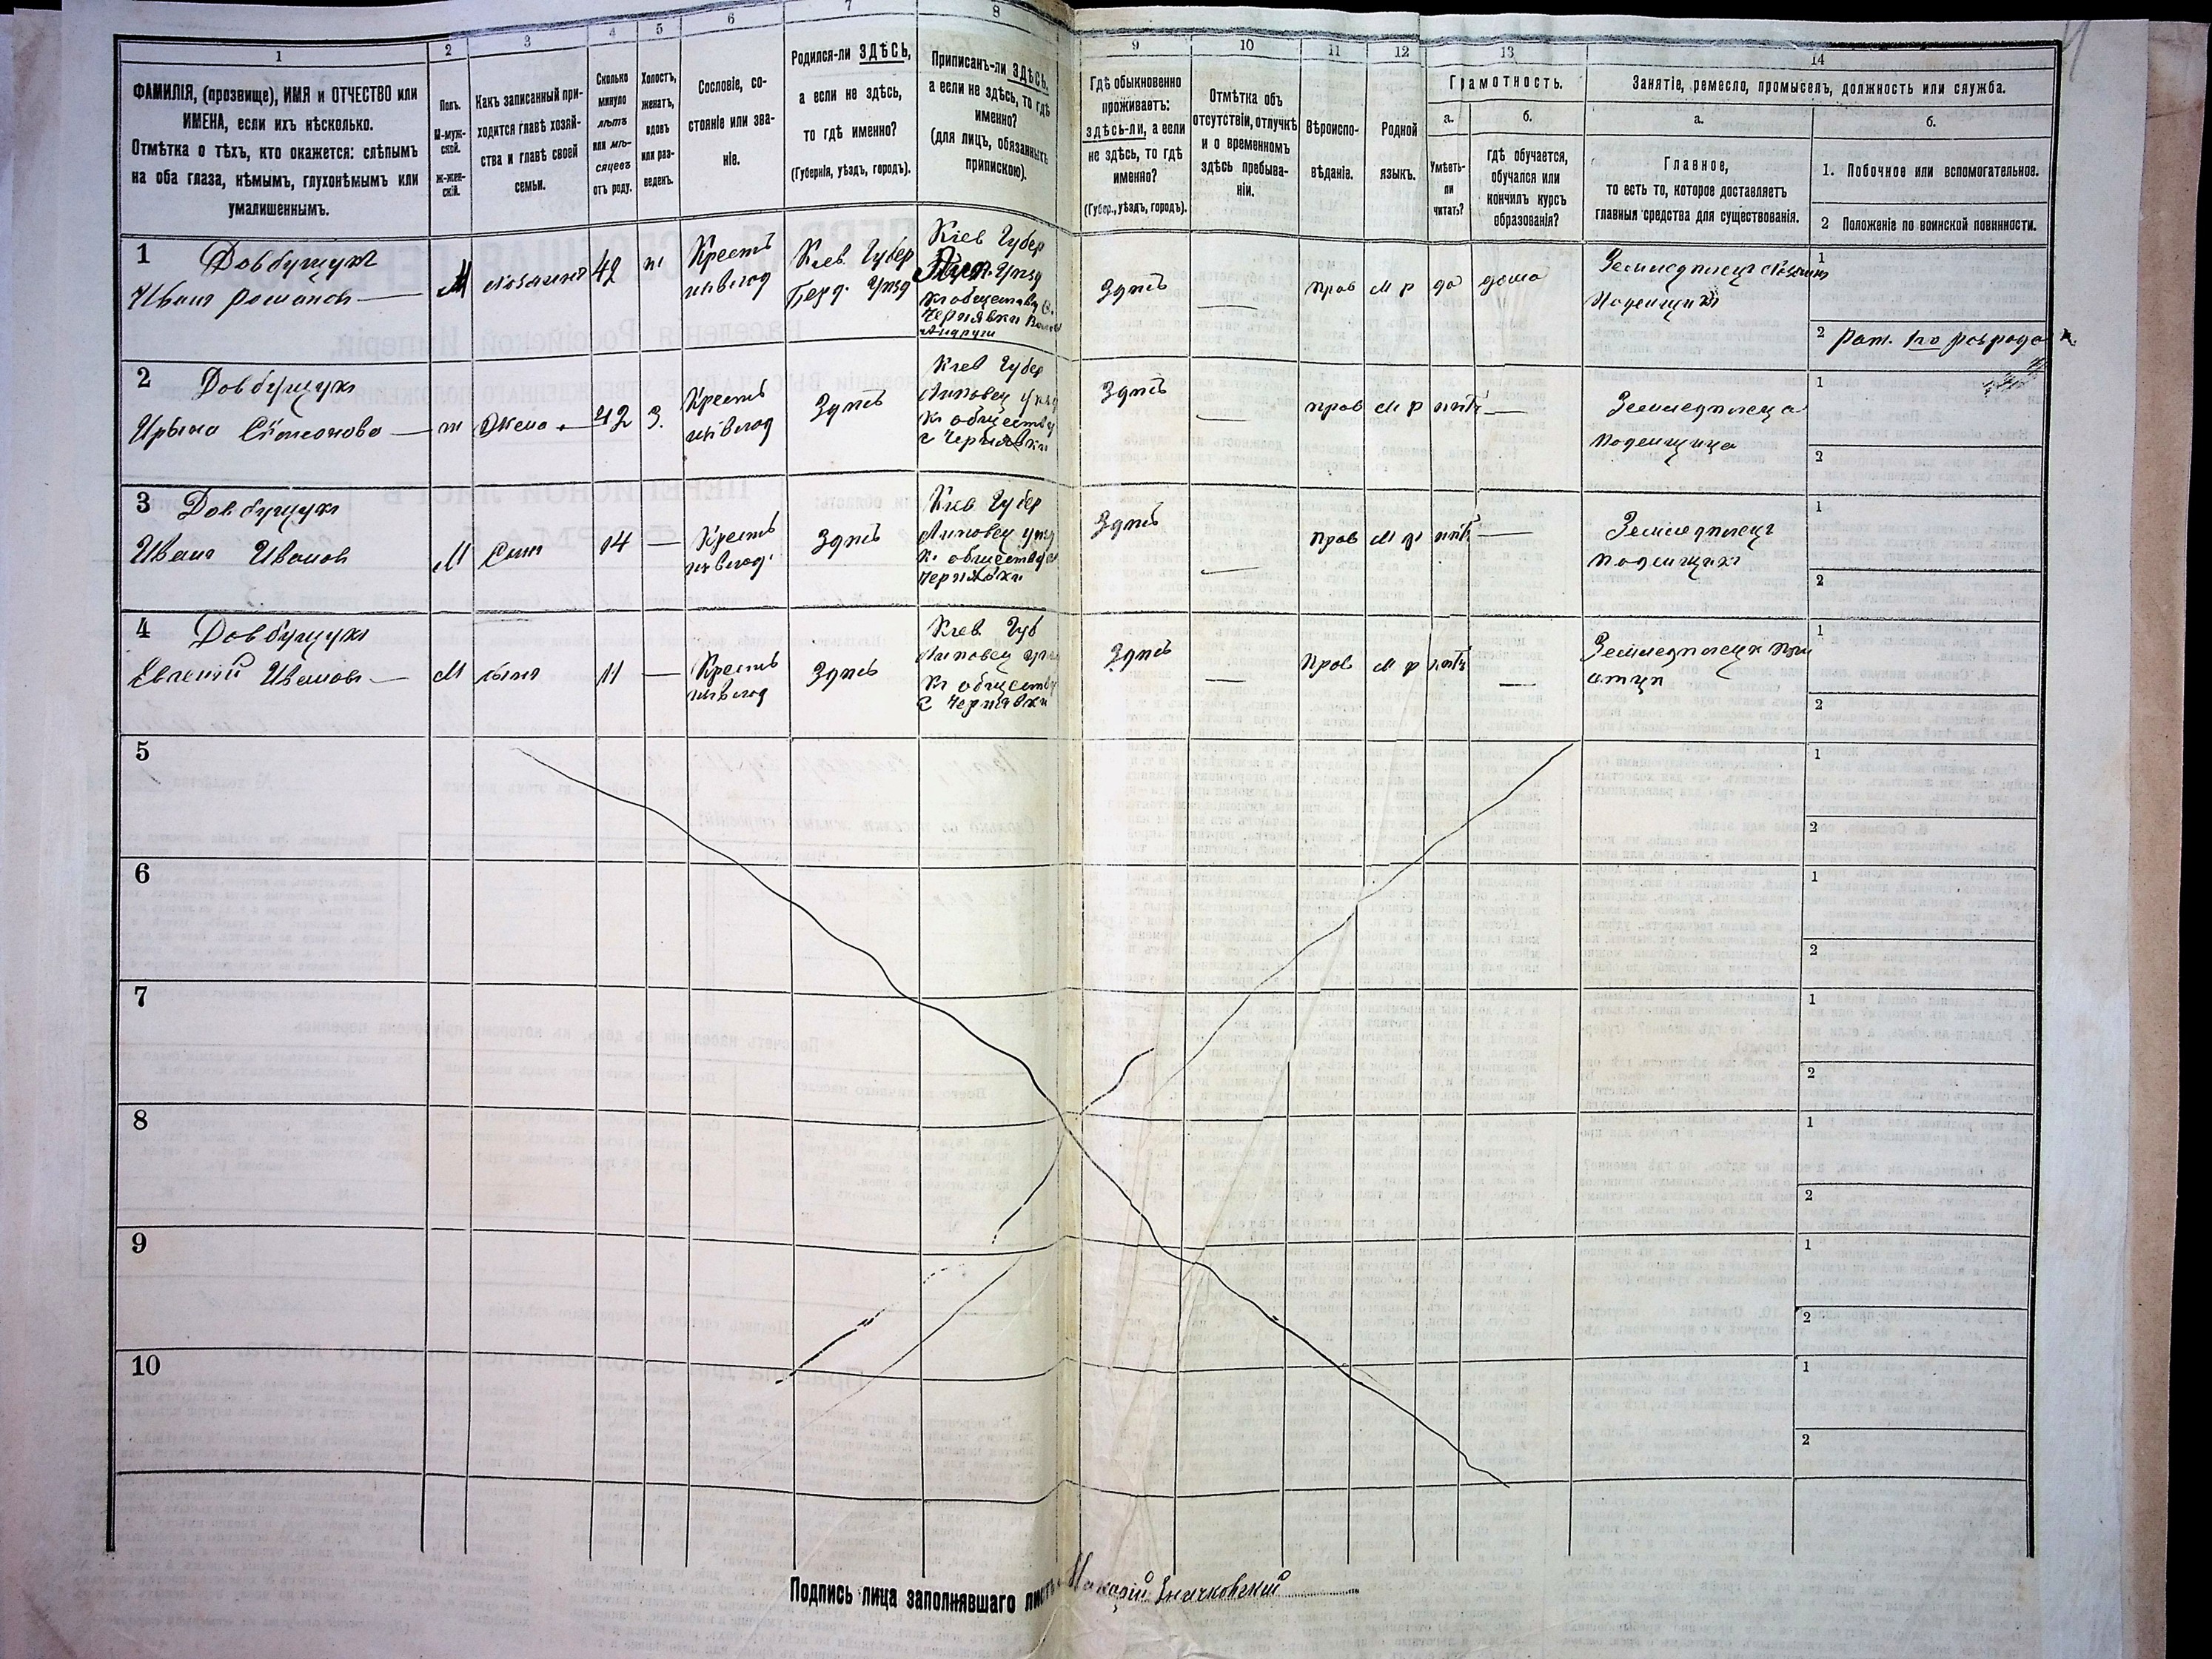 1 2 3 4 5 6 7 8 9 10 11 12 13 14
ФАМИЛІЯ, (прозвище), ИМЯ и ОТЧЕСТВО или
ИМЕНА, если ихъ нѣсколько.
Отмѣтка о тѣхъ, кто окажется: слѣпымъ
на оба глаза, нѣмымъ, глухонѣмымъ или
умалишеннымъ.
Полъ.
М-муж-
ской.
Ж-жен-
скій.
Какъ записанный при-
ходится главѣ хозяй-
ства и главѣ своей
семьи.
Сколько
минуло
лѣтъ
или мѣ-
сяцевъ
отъ роду.
Холостъ,
женатъ,
вдовъ
или раз-
веденъ.
Сословіе, со-
стояніе или зва-
ніе.
Родился-ли ЗДѢСЬ,
а если не здѣсь,
то гдѣ именно?
(Губернія, уѣздъ, городъ).
Приписанъ-ли ЗДѢСЬ,
а если не здѣсь, то гдѣ
именно?
(для лицъ, обязанныхъ
припискою).
Гдѣ обыкновенно
проживаетъ:
здѣсь-ли, а если
не здѣсь, то гдѣ
именно?
(Губер., уѣздъ, городъ).
Отмѣтка объ
отсутствіи, отлучкѣ
и о временномъ
здѣсь пребыва-
ніи.
Вѣроиспо-
вѣданіе.
Родной
языкъ.
Грамотность.
а.
Умѣетъ-
ли
читать?
б.
гдѣ обучается,
обучался или
кончилъ курсъ
образованія?
Занятіе, ремесло, промыселъ, должность или служба.
а.
Главное,
то есть то, которое доставляетъ
главныя средства для существованія.
б.
1. Побочное или вспомогательное.
2 Положеніе по воинской повинности.
1 Довбущукъ
Иванъ Романовъ
М хозяинъ 42 ж
Крестъ
изъ влад
Кіев. Губер
Берд. Уѣзд
Кіев Губер
Лип. Уѣзд
къ обществу с.
Чернявки
Здѣсь —
прав м р да дома
Земледѣлецъ хозяинъ
Поденщикъ
1
2 Рат. 1го розряда
2 Довбущукъ
Ирына Симонова
ж Жена 42 З.
Крестъ
изъ влад
Здѣсь
Кіев Губер
Липовец уѣзд
къ обществу
с Чернявки
Здѣсь —
прав м р нѣтъ —
Земледѣлица
поденщица
1
2
3 Довбущукъ
Иванъ Ивановъ
М Сынъ 14 —
Крестъ
изъ влад.
Здѣсь
Кіев Губер
Липовец уѣзд
къ обществу с
Чернявки
Здѣсь —
прав м р нѣтъ —
Земледѣлецъ
поденщикъ
1
2
4 Довбущукъ
Евгеній Ивановъ
М сынъ 11 —
Крестъ
изъ влад
Здѣсь
Кіев Губ
Липовец уѣзд
къ обществу
с Чернявки
Здѣсь —
прав м р нѣтъ —
Земледѣлецъ при
отцѣ
1
2
5
1
2
6
1
2
7
1
2
8
1
2
9
1
2
10
1
2
Подпись лица заполнявшаго листъ Макарій